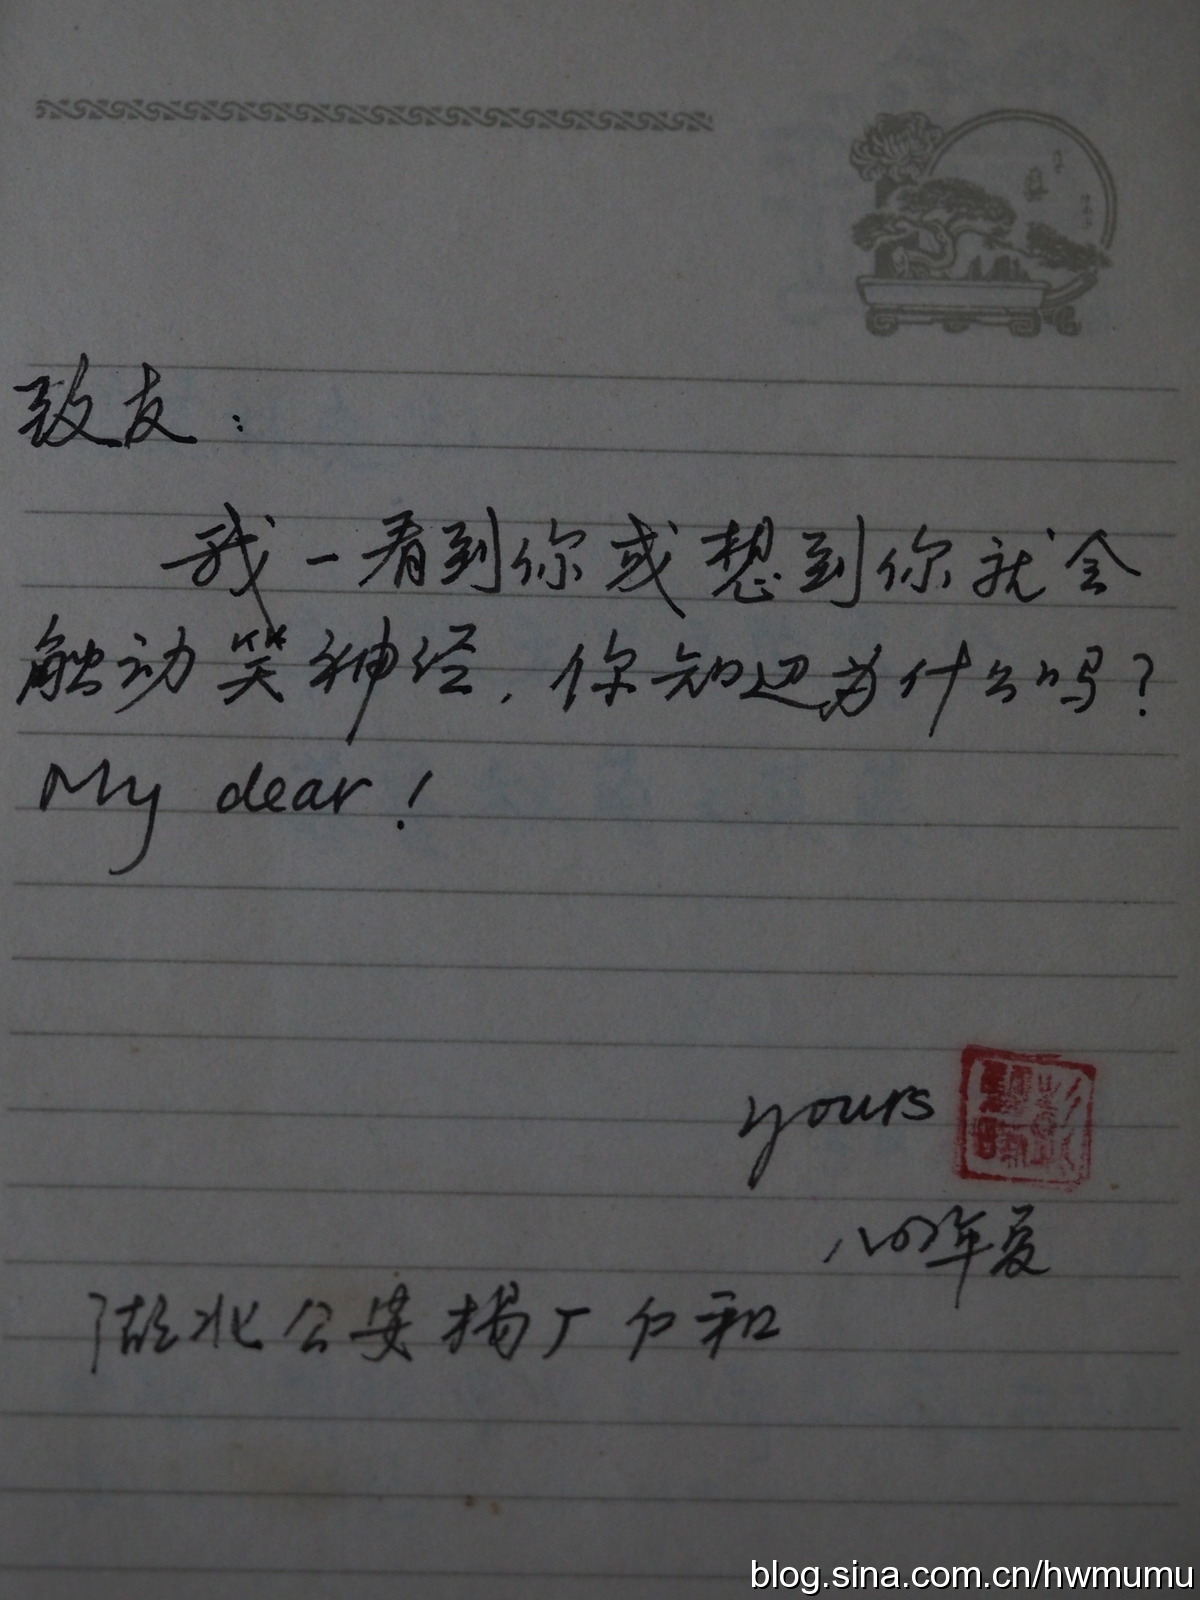 致友：
我一看到你或想到你就会
触动笑神经，你知道为什么吗？
My dear！
yours
八四年夏
湖北公安杨厂仁和
blog.sina.com.cn/hwmumu